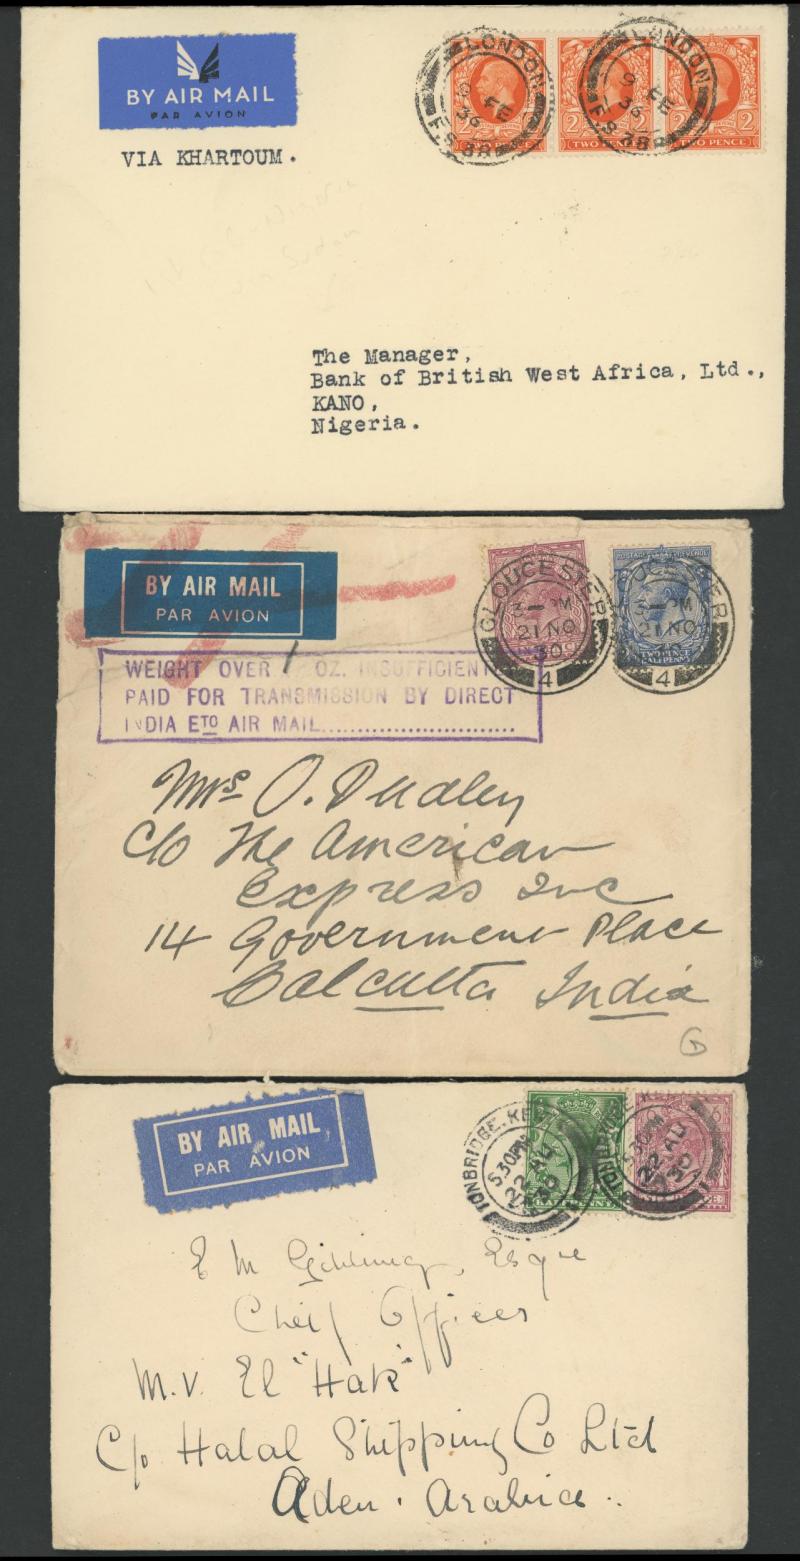 BY AIR MAIL
PAR AVION
VIA KHARTOUM.
LONDON
9 FE
36
F.S. 38R
LONDON
9 FE
36
F.S. 38R
2
TWO PENCE
2
TWO PENCE
2 2
TWO PENCE
The Manager,
Bank of British West Africa, Ltd.,
KANO,
Nigeria.
BY AIR MAIL
PAR AVION
GLOUCESTER
3 - PM
21 NO
30
4
POSTAGE REVENUE
GLOUCESTER
3 - PM
21 NO
30
4
TWO PENCE
HALFPENNY
WEIGHT OVER OZ. INSUFFICIENTLY
PAID FOR TRANSMISSION BY DIRECT
INDIA ETO AIR MAIL
Mrs O. Dudley
c/o The American
Express Inc
14 Government Place
Calcutta India
BY AIR MAIL
PAR AVION
TONBRIDGE. KENT
5 30 PM
22 AU
30
HALFPENNY
5 30 PM
22 AU
30
E M Esqre
Chief Officer
M.V. El "Hak"
C/o Halal Shipping Co Ltd
Aden. Arabia..